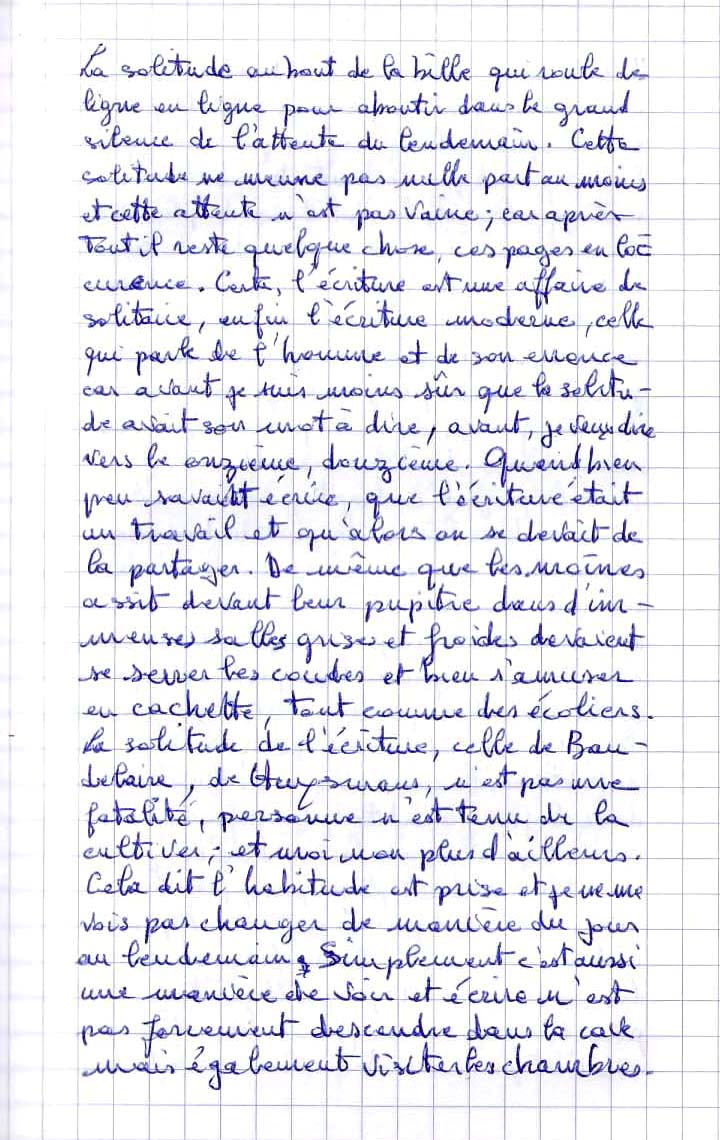 La solitude au bout de la bille qui roule de
ligne en ligne pour aboutir dans le grand
silence de l'attente du lendemain. Cette
solitude ne meune pas nulle part au moins
et cette attente n'est pas vaine; car après
tout il reste quelque chose, ces pages en l'oc
curence. Certe, l'écriture est une affaire de
solitaire, enfin l'écriture moderne, celle
qui parle de l'homme et de son errence
car avant je suis moins sûr que la solitu-
de avait son mot à dire, avant, je veux dire
vers le onzième, douzième. Quand bien
peu savait écrire, que l'écriture était
un travail et qu'alors on se devait de
la partager. De même que les moines
assit devant leur pupitre dans d'im-
menses salles grises et froides devaient
se serrer les coudes et bien s'amuser
en cachette, tout comme des écoliers.
La solitude de l'écriture, celle de Bau-
delaire, de Huysmans, n'est pas une
fatalité, personne n'est tenu de la
cultiver; et moi non plus d'ailleurs.
Cela dit l'habitude est prise et je ne me
vois pas changer de manière du jour
au lendemain. Simplement c'est aussi
une manière de voir et écrire n'est
pas forcement descendre dans la cave
mais également visiter les chambres.